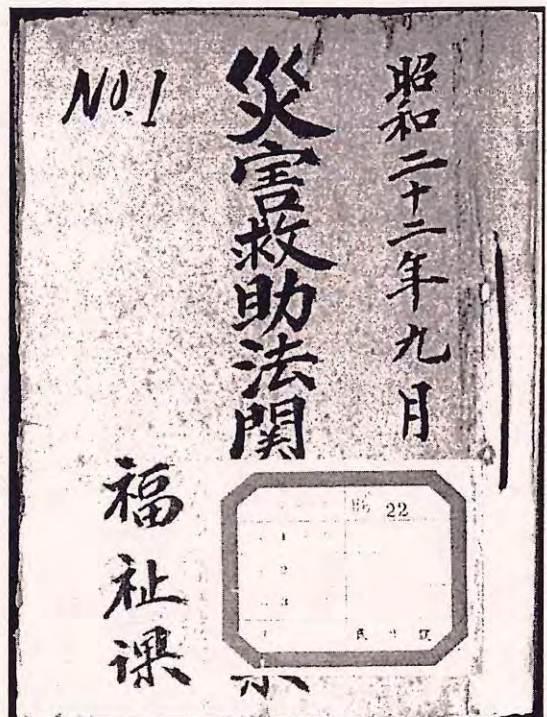 昭和二十二年九月
災害救助法関
No.1
福祉課
昭 22
1
2
3